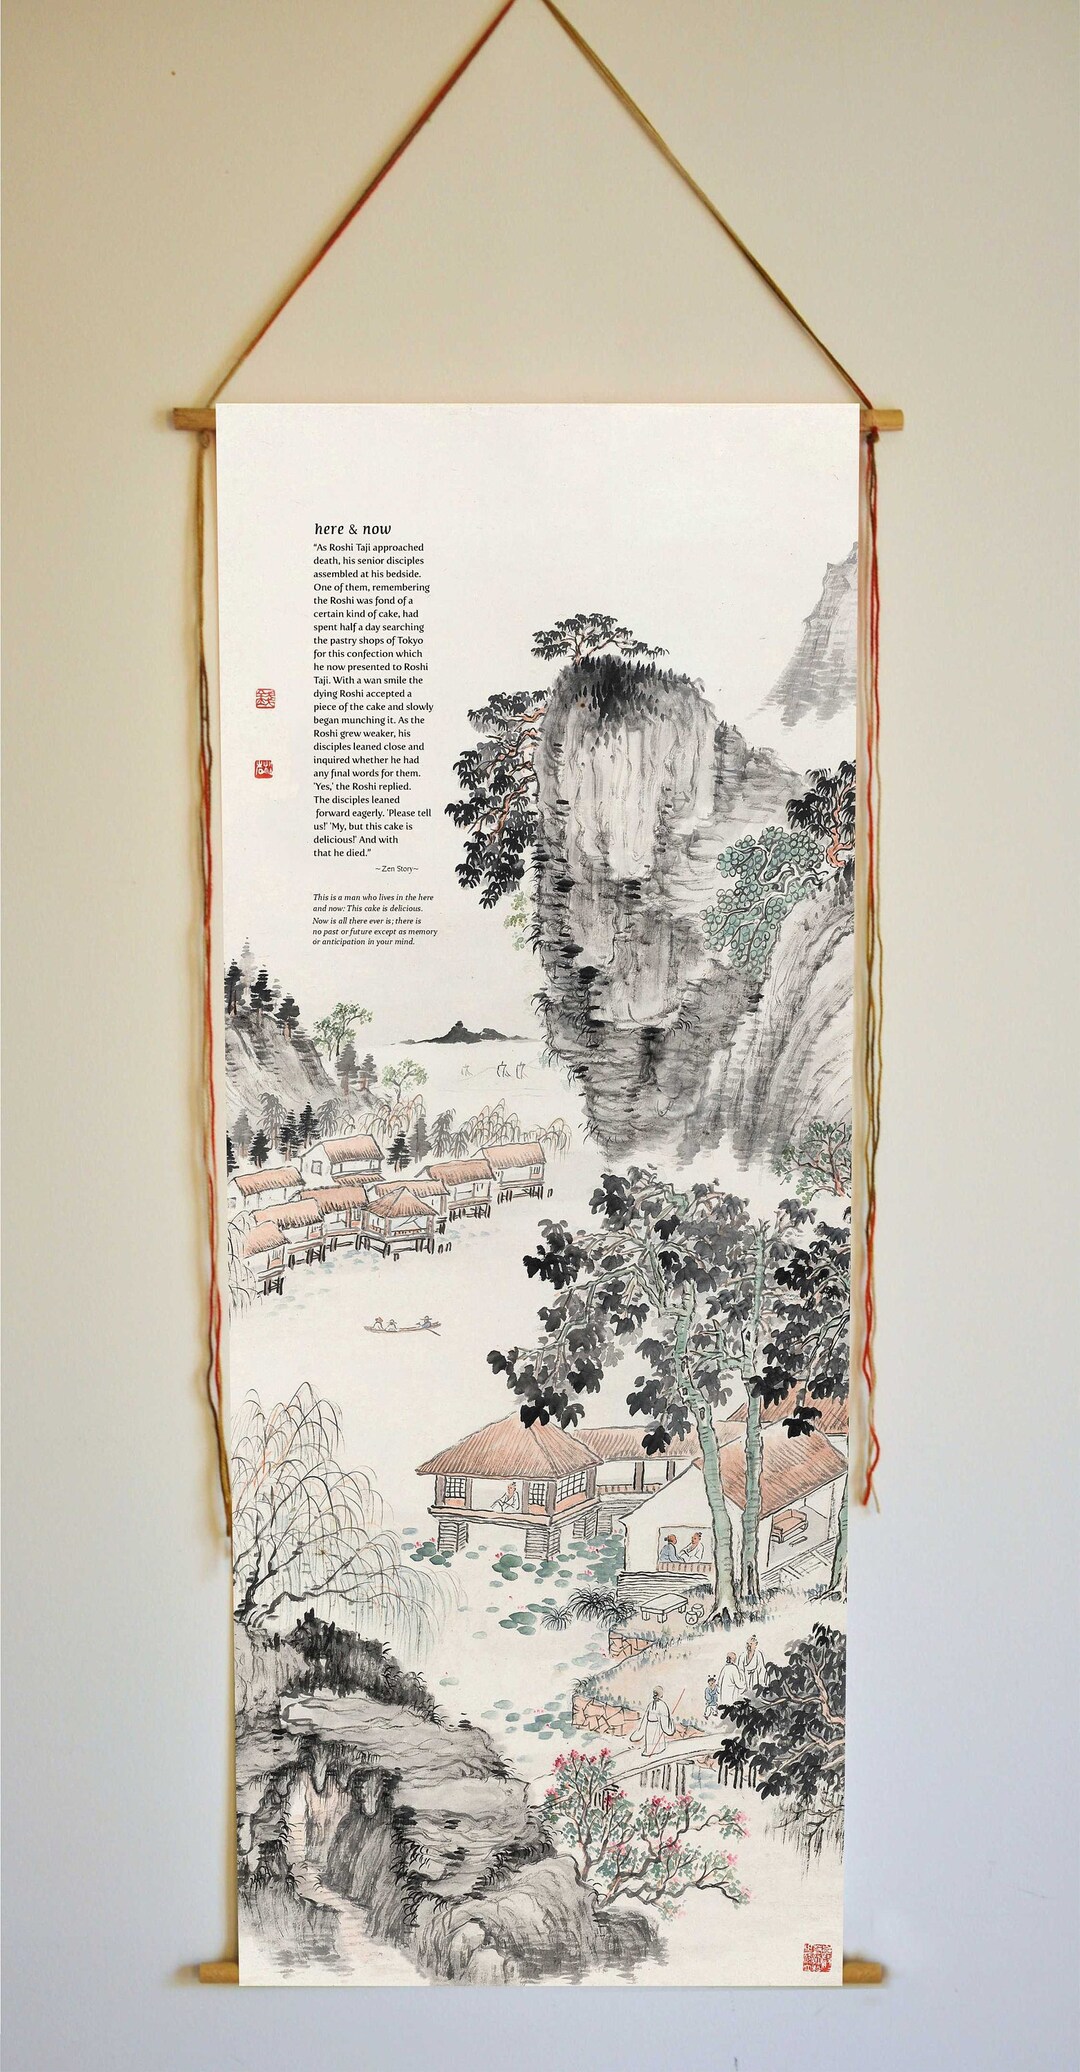 here & now
“As Roshi Taji approached
death, his senior disciples
assembled at his bedside.
One of them, remembering
the Roshi was fond of a
certain kind of cake, had
spent half a day searching
the pastry shops of Tokyo
for this confection which
he now presented to Roshi
Taji. With a wan smile the
dying Roshi accepted a
piece of the cake and slowly
began munching it. As the
Roshi grew weaker, his
disciples leaned close and
inquired whether he had
any final words for them.
‘Yes,’ the Roshi replied.
The disciples leaned
forward eagerly. ‘Please tell
us!’ ‘My, but this cake is
delicious!’ And with
that he died.”
~Zen Story~
This is a man who lives in the here
and now: This cake is delicious.
Now is all there ever is; there is
no past or future except as memory
or anticipation in your mind.